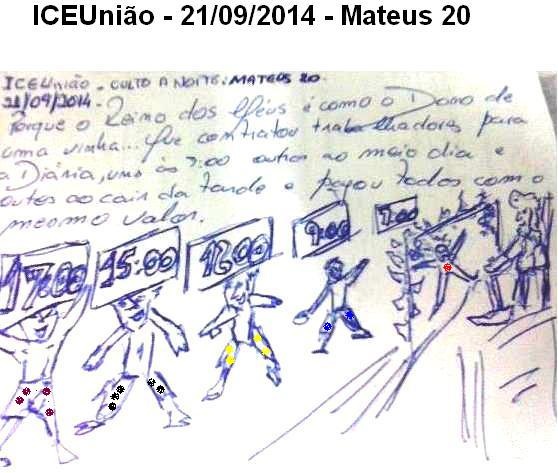 ICEUnião - 21/09/2014 - Mateus 20
ICEUnião - CULTO A NOITE: MATEUS 20.
21/09/2014 -
Porque o Reino dos Céus é como o Dono de
uma vinha... Que contratou trabalhadores para
a Diária, uns às 7:00 outros ao meio dia e
outros ao cair da tarde e pagou todos com o
mesmo valor.
17:00 15:00 12:00 9:00 7:00